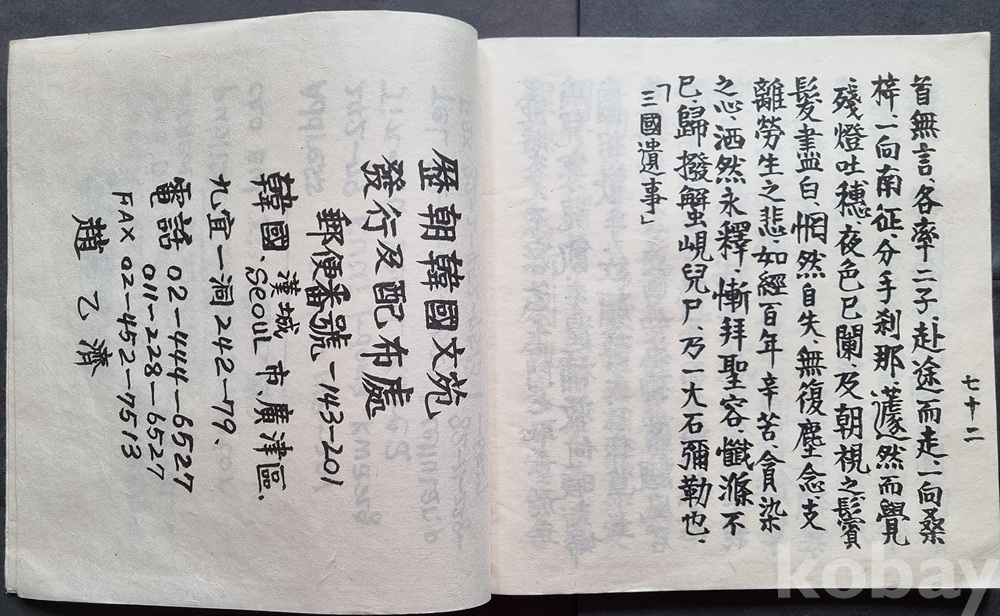 七十二
首無言、各率二子、赴途而走、一向桑
梓、一向南征、分手刹那、蘧然而覺
殘燈吐穗、夜色已闌、及朝視之、鬢
髮盡白、惘然自失、無復塵念、支
離勞生之悲、如經百年辛苦、貪染
之心、洒然永釋、慚拜聖容、懺滌不
已、歸撥蟹峴兒尸、乃一大石彌勒也、
「三國遺事」
歷朝韓國文苑
發行及配布處
郵便番號-143-201
韓國、漢城 Seoul 市、廣津區、
九宜一洞 242-79.
電話 02-444-6527
011-228-6527
FAX 02-452-7513
趙乙濟
kobay